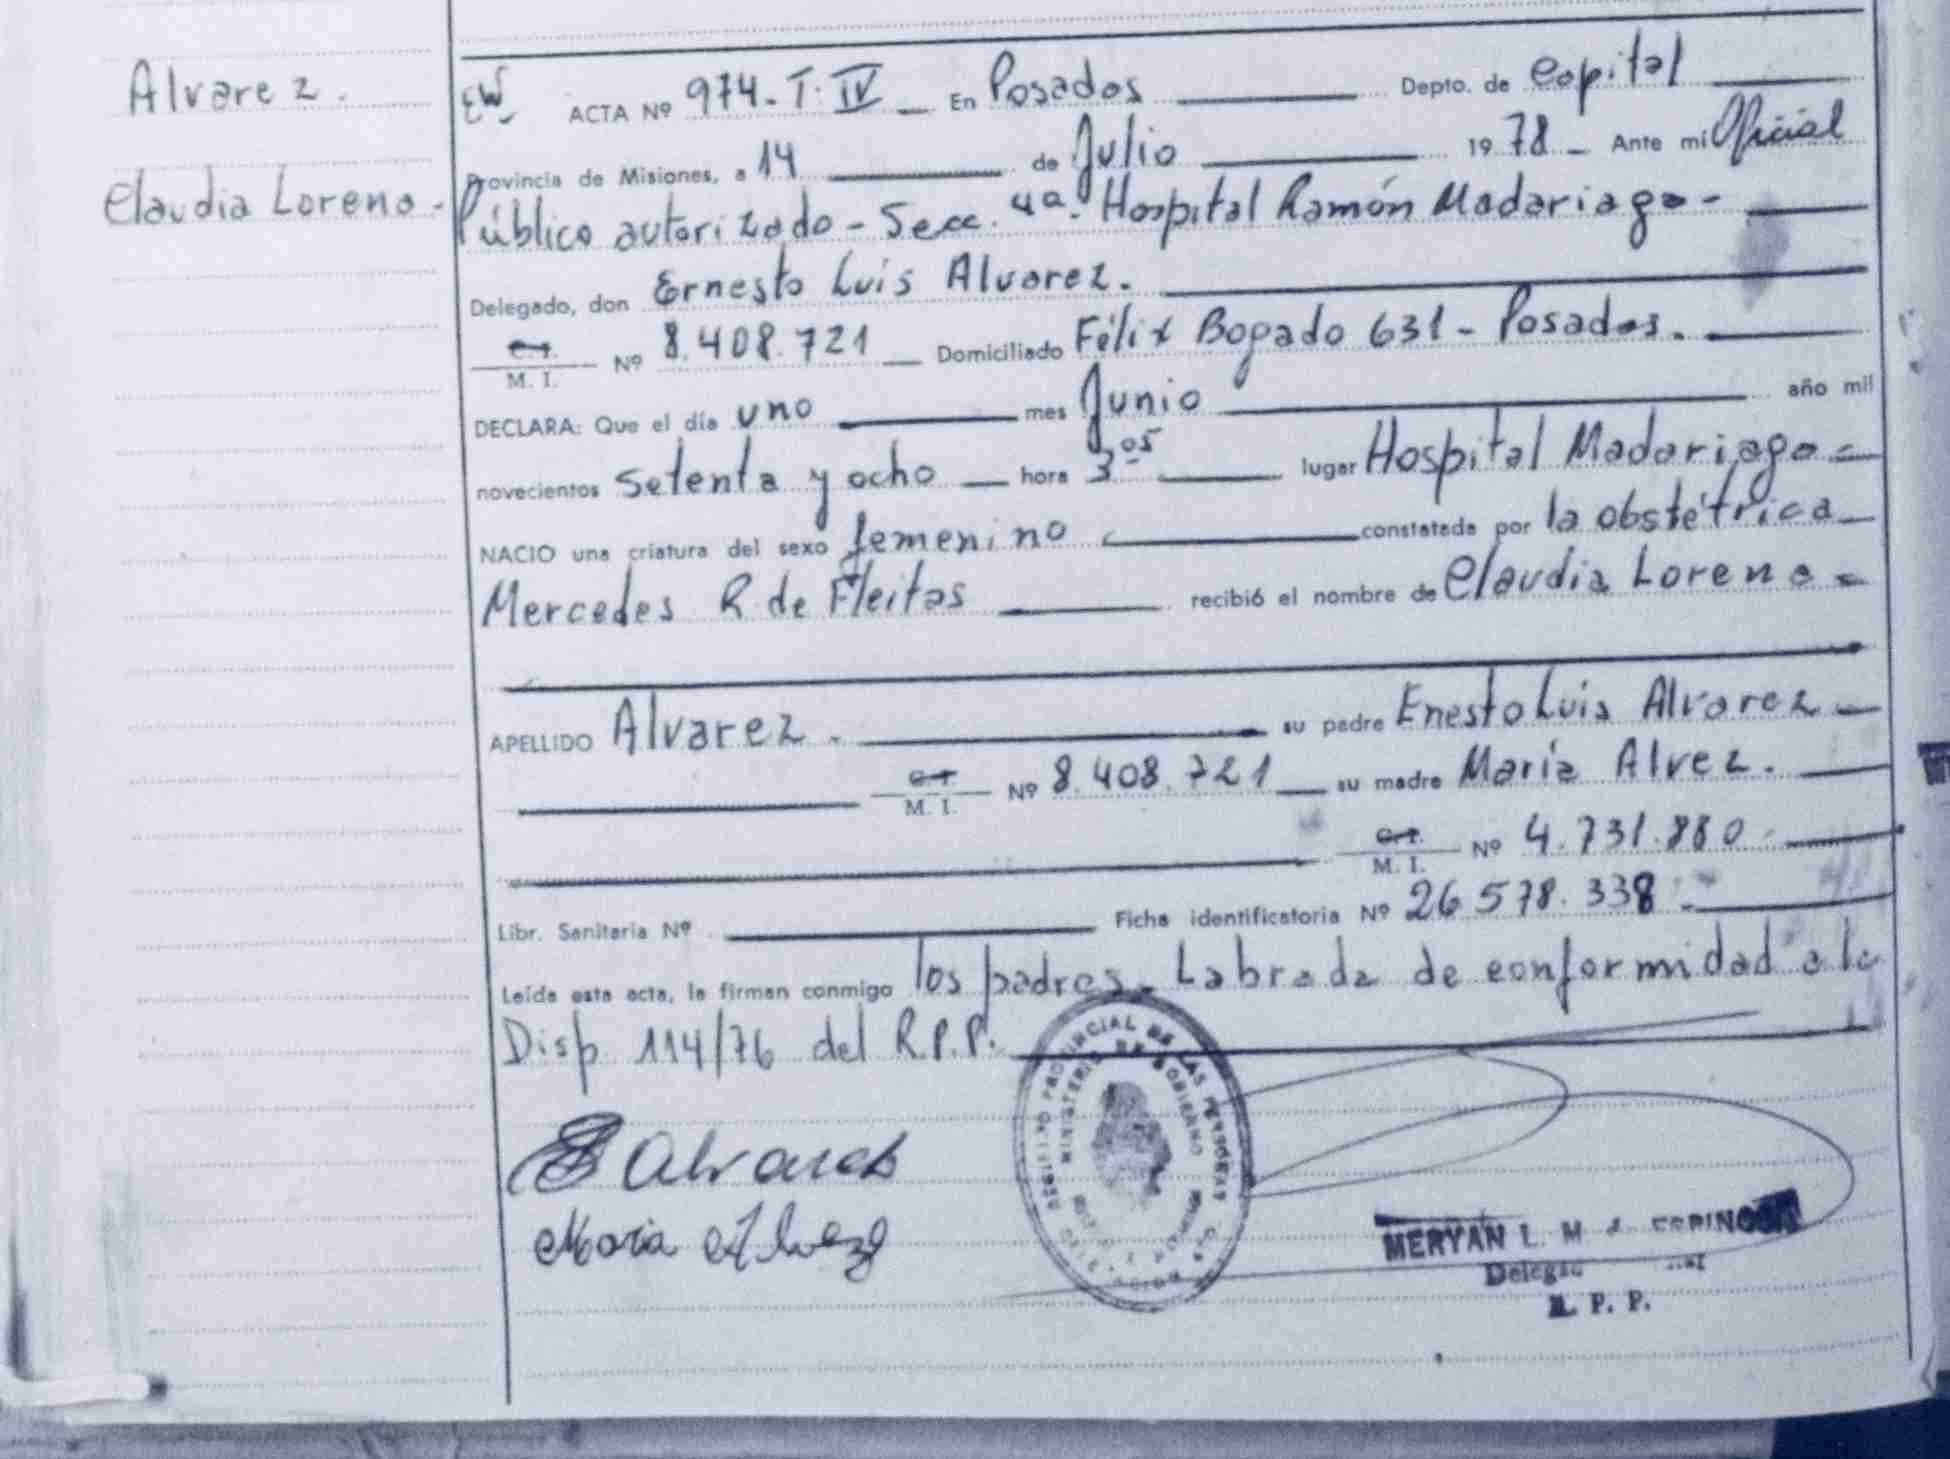 Alvarez.
Claudia Lorena-
ACTA Nº 974-T.IV - En Posadas Depto. de Capital
Provincia de Misiones, a 14 de Julio 1978 - Ante mi Oficial
Público autorizado - Secc. 4a. Hospital Ramón Madariaga -
Delegado, don Ernesto Luis Alvarez.
C.I.
M. I. Nº 8.408.721 Domiciliado Félix Bogado 631 - Posadas.
DECLARA: Que el día uno mes Junio año mil
novecientos setenta y ocho hora 3 05 lugar Hospital Madariaga -
NACIO una criatura del sexo femenino constatada por la obstétrica
Mercedes R. de Fleitas recibió el nombre de Claudia Lorena -
APELLIDO Alvarez. su padre Enesto Luis Alvarez -
C.I.
M. I. Nº 8.408.721 su madre María Alvez.
C.I.
M. I. Nº 4.731.880
Libr. Sanitaria Nº Ficha identificatoria Nº 26.578.338 -
Leída esta acta, la firman conmigo los padres. Labrada de conformidad a la
Disp 114/76 del R.P.P.
REGISTRO PROVINCIAL DE LAS PERSONAS
MINISTERIO DE GOBIERNO
Alvarez
Maria Alvez
MERYAN L. M
R. P. P.